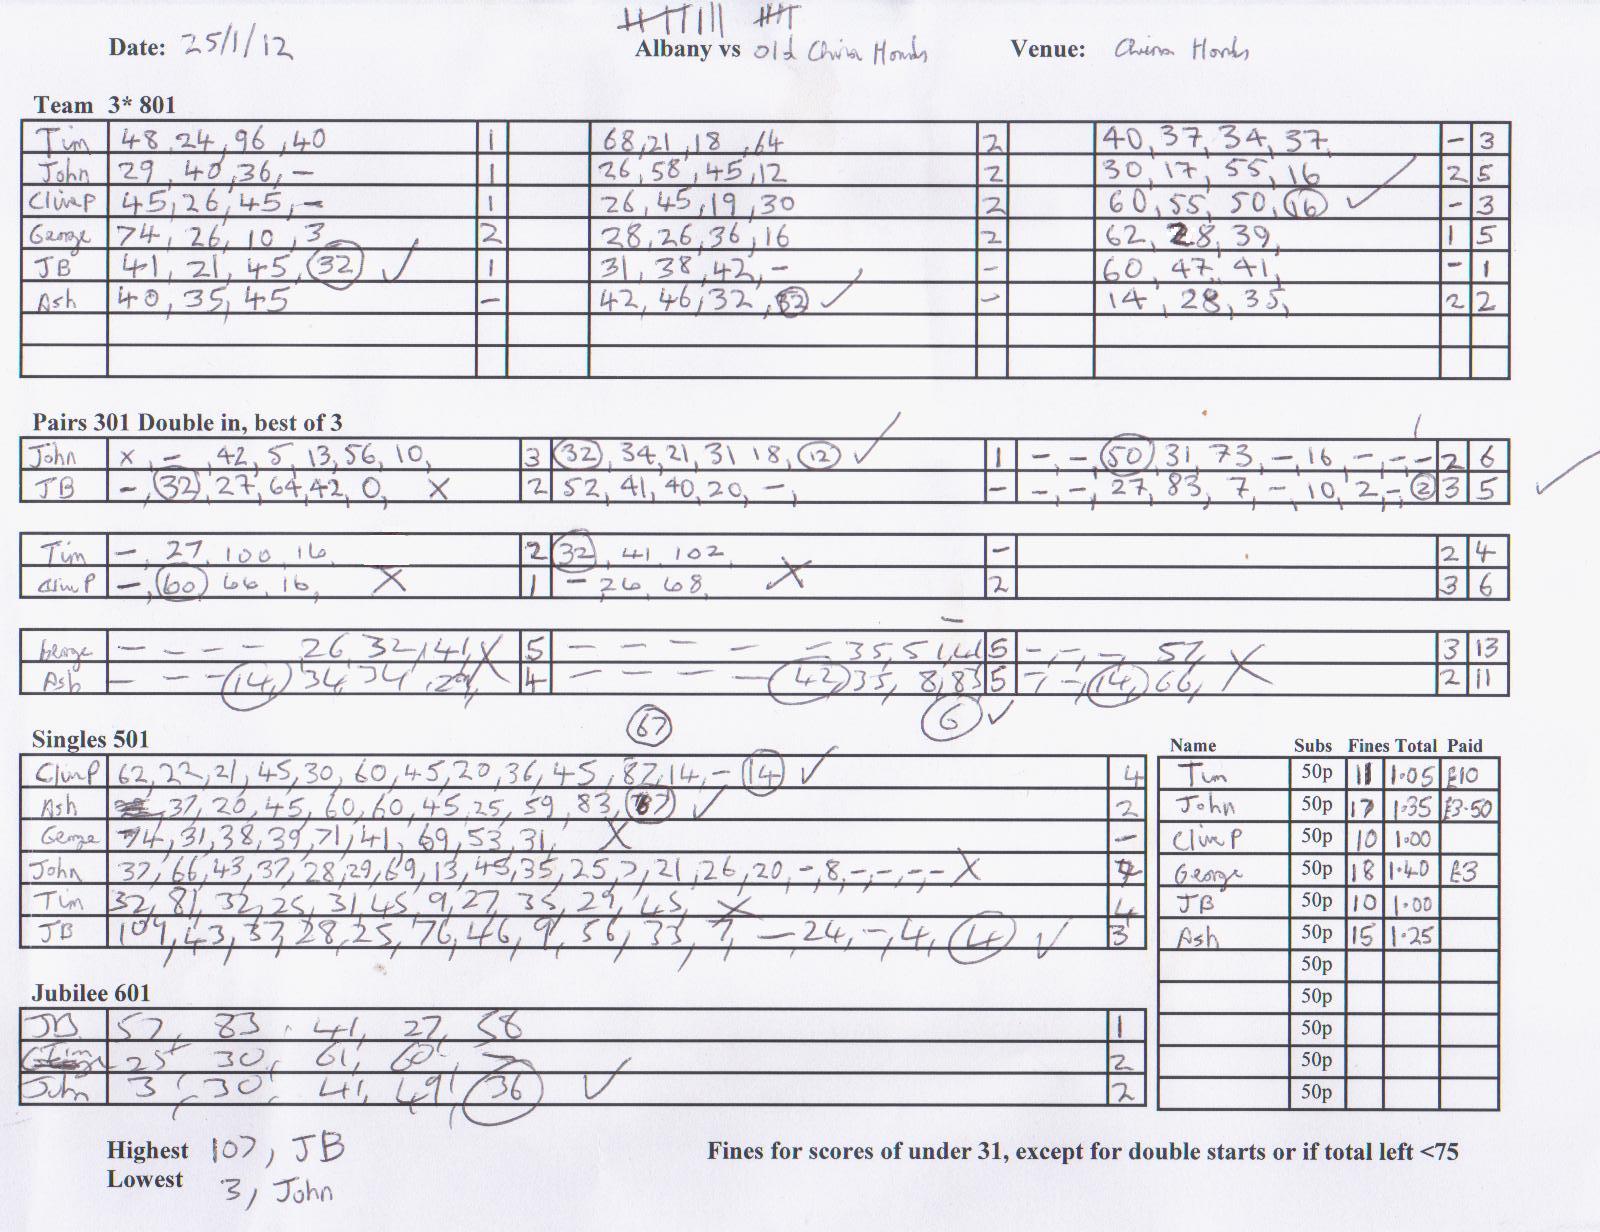 Date: 25/1/12 Albany vs Old China Hands Venue: China Hands
Team 3* 801
Tim 48, 24, 96, 40 1 68, 21, 18, 64 2 40, 37, 34, 37, - 3
John 29, 40, 36, - 1 26, 58, 45, 12 2 30, 17, 55, 16 2 5
Clive P 45, 26, 45, - 1 26, 45, 19, 30 2 60, 55, 50, 16 ✓ - 3
George 74, 26, 10, 3 2 28, 26, 36, 16 2 62, 28, 39, 1 5
JB 41, 21, 45, 32 ✓ 1 31, 38, 42, - - 60, 47, 41, - 1
Ash 40, 35, 45 - 42, 46, 32, 32 ✓ - 14, 28, 35, 2 2
Pairs 301 Double in, best of 3
John x, -, 42, 5, 13, 56, 10, 3 32, 34, 21, 31 18, 12 ✓ 1 -, -, 50, 31, 73, -, 16, -, -, - 2 6
JB -, 32, 27, 64, 42, 0, X 2 52, 41, 40, 20, -, - -, -, 27, 83, 7, -, 10, 2, -, 2 3 5 ✓
Tim -, 27, 100, 16, 2 32, 41, 102, - 2 4
Clive P -, 60, 66, 16, X 1 - 26, 68, X 2 3 6
George - - - - 26, 32, 41, X 5 - - - - - 35, 51, 41 5 -, -, -, 57, X 3 13
Ash - - - 14, 34, 34, 29, 4 - - - - 42, 35, 8, 83 5 -, -, 14, 66, 2 11
6 ✓
67
Singles 501
Clive P 62, 22, 21, 45, 30, 60, 45, 20, 36, 45, 82, 14, - 14 ✓ 4
Ash 37, 20, 45, 60, 60, 45, 25, 59, 83, 67 ✓ 2
George 74, 31, 38, 39, 71, 41, 69, 53, 31, X -
John 37, 66, 43, 37, 28, 29, 69, 13, 45, 35, 25, 7, 21, 26, 20, -, 8, -, -, -, - X
Tim 32, 81, 32, 25, 31, 45, 9, 27, 35, 29, 45, X 4
JB 107, 43, 37, 28, 25, 76, 46, 9, 56, 33, 7, - 24, -, 4, 4 ✓ 3
Name Subs Fines Total Paid
Tim 50p 11 1.05 £10
John 50p 17 1.35 £3.50
Clive P 50p 10 1.00
George 50p 18 1.40 £3
JB 50p 10 1.00
Ash 50p 15 1.25
50p
50p
50p
50p
50p
Jubilee 601
JB 57, 83, 41, 27, 58 1
Tim 25, 30, 61, 60, 2
John 3, 30, 41, 49, 36 ✓ 2
Highest 107, JB
Lowest 3, John
Fines for scores of under 31, except for double starts or if total left <75